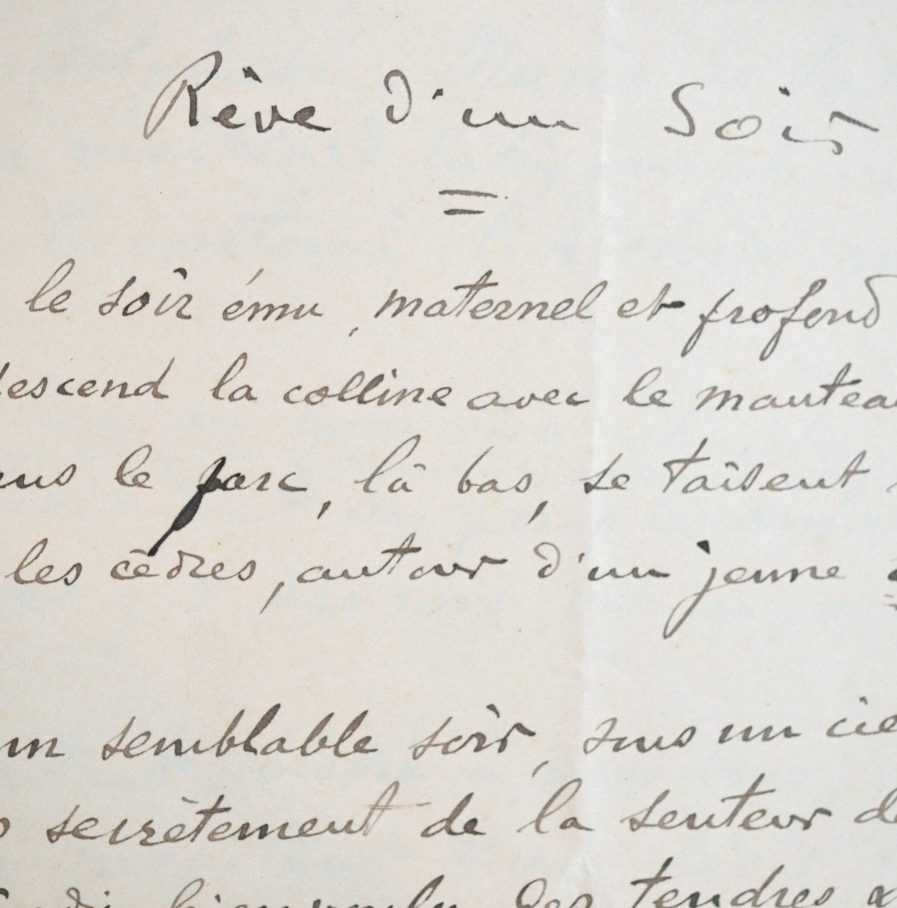 Rêve d'un Soir
le soir ému, maternel et profond
descend la colline avec le manteau
le parc, là bas, se taisent
les cèdres, autour d'un jeune
un semblable soir, sous un
secrètement de la senteur
bienvoulu des tendres